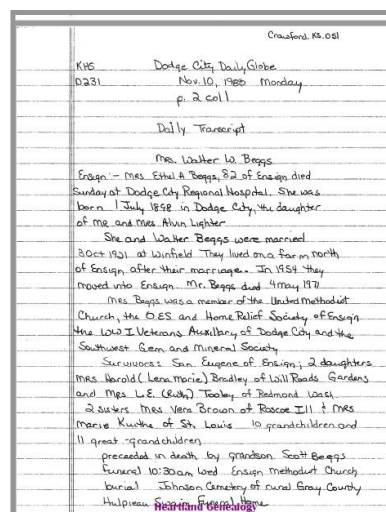 Crawford, KS. 051
KHS Dodge City Daily Globe
D231 Nov. 10, 1980 Monday
p. 2 col 1
Daily Transcript
Mrs. Walter W. Beggs
Ensign :- Mrs Ethel A Beggs, 82 of Ensign died
Sunday at Dodge City Regional Hospital. She was
born 1 July 1898 in Dodge City, the daughter
of MR and Mrs Alvin Lighter
She and Walter Beggs were married
30 Oct 1921 at Winfield They lived on a farm north
of Ensign after their marriage. In 1954 they
moved into Ensign. Mr. Beggs died 4 may 1971
Mrs Beggs was a member of the United Methodist
Church, the OES and Home Relief Society of Ensign
the WW I Veterans Auxillary of Dodge City and the
Southwest Gem and Mineral Society
Survivors: Son Eugene of Ensign; 2 daughters
MRS Harold (Lena Marie) Bradley of Will Roads Gardens
and Mrs L.E. (Ruth) Tooley of Redmond Wash
2 sisters Mrs Vera Brown of Roscoe Ill & MRS
Marie Kunthe of St. Louis 10 grandchildren and
11 great-grandchildren
preceeded in death by grandson Scott Beggs
Funeral 10:30 am Wed Ensign methodist Church
burial Johnson Cemetery of rural Gray County
Hulpieau Swaim Funeral Home
Heartland Genealogy